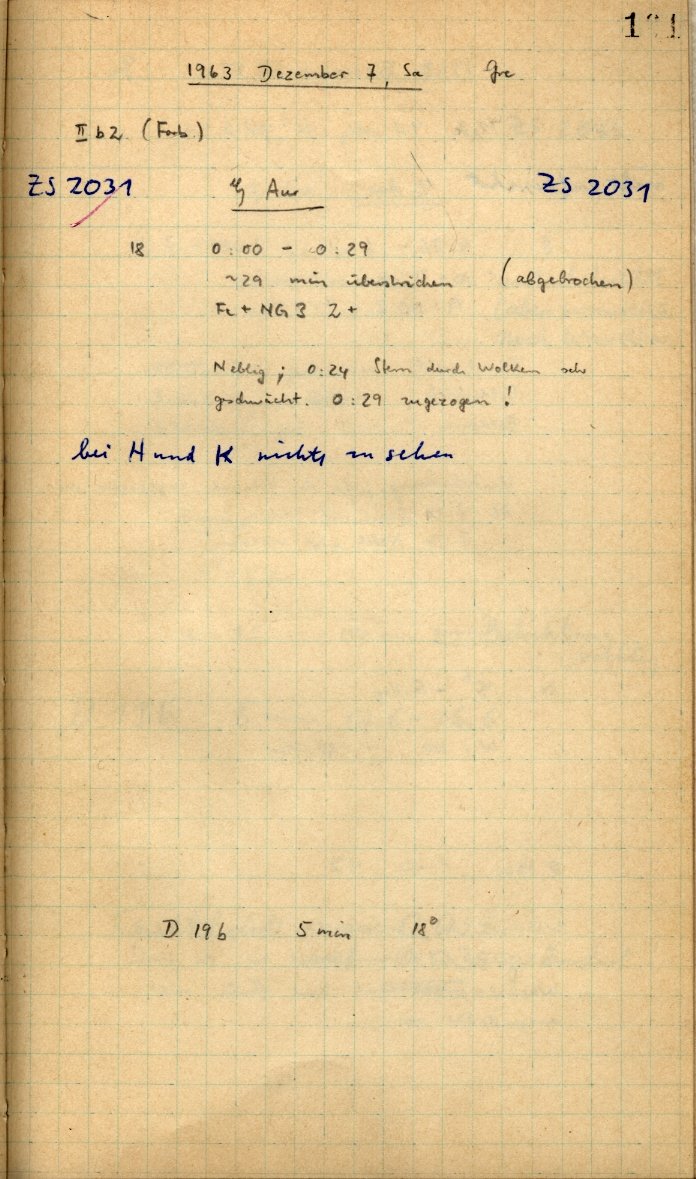 1963 Dezember 7, Sa Gre
II b2 (Farb.)
ZS 2031 Aur ZS 2031
18 0:00 - 0:29
~29 min überstrichen (abgebrochen)
Fe + NG 3 2+
Neblig; 0:24 Stern durch Wolken sehr
geschwächt. 0:29 zugezogen!
bei H und K nichts zu sehen
D 19b 5 min 18°